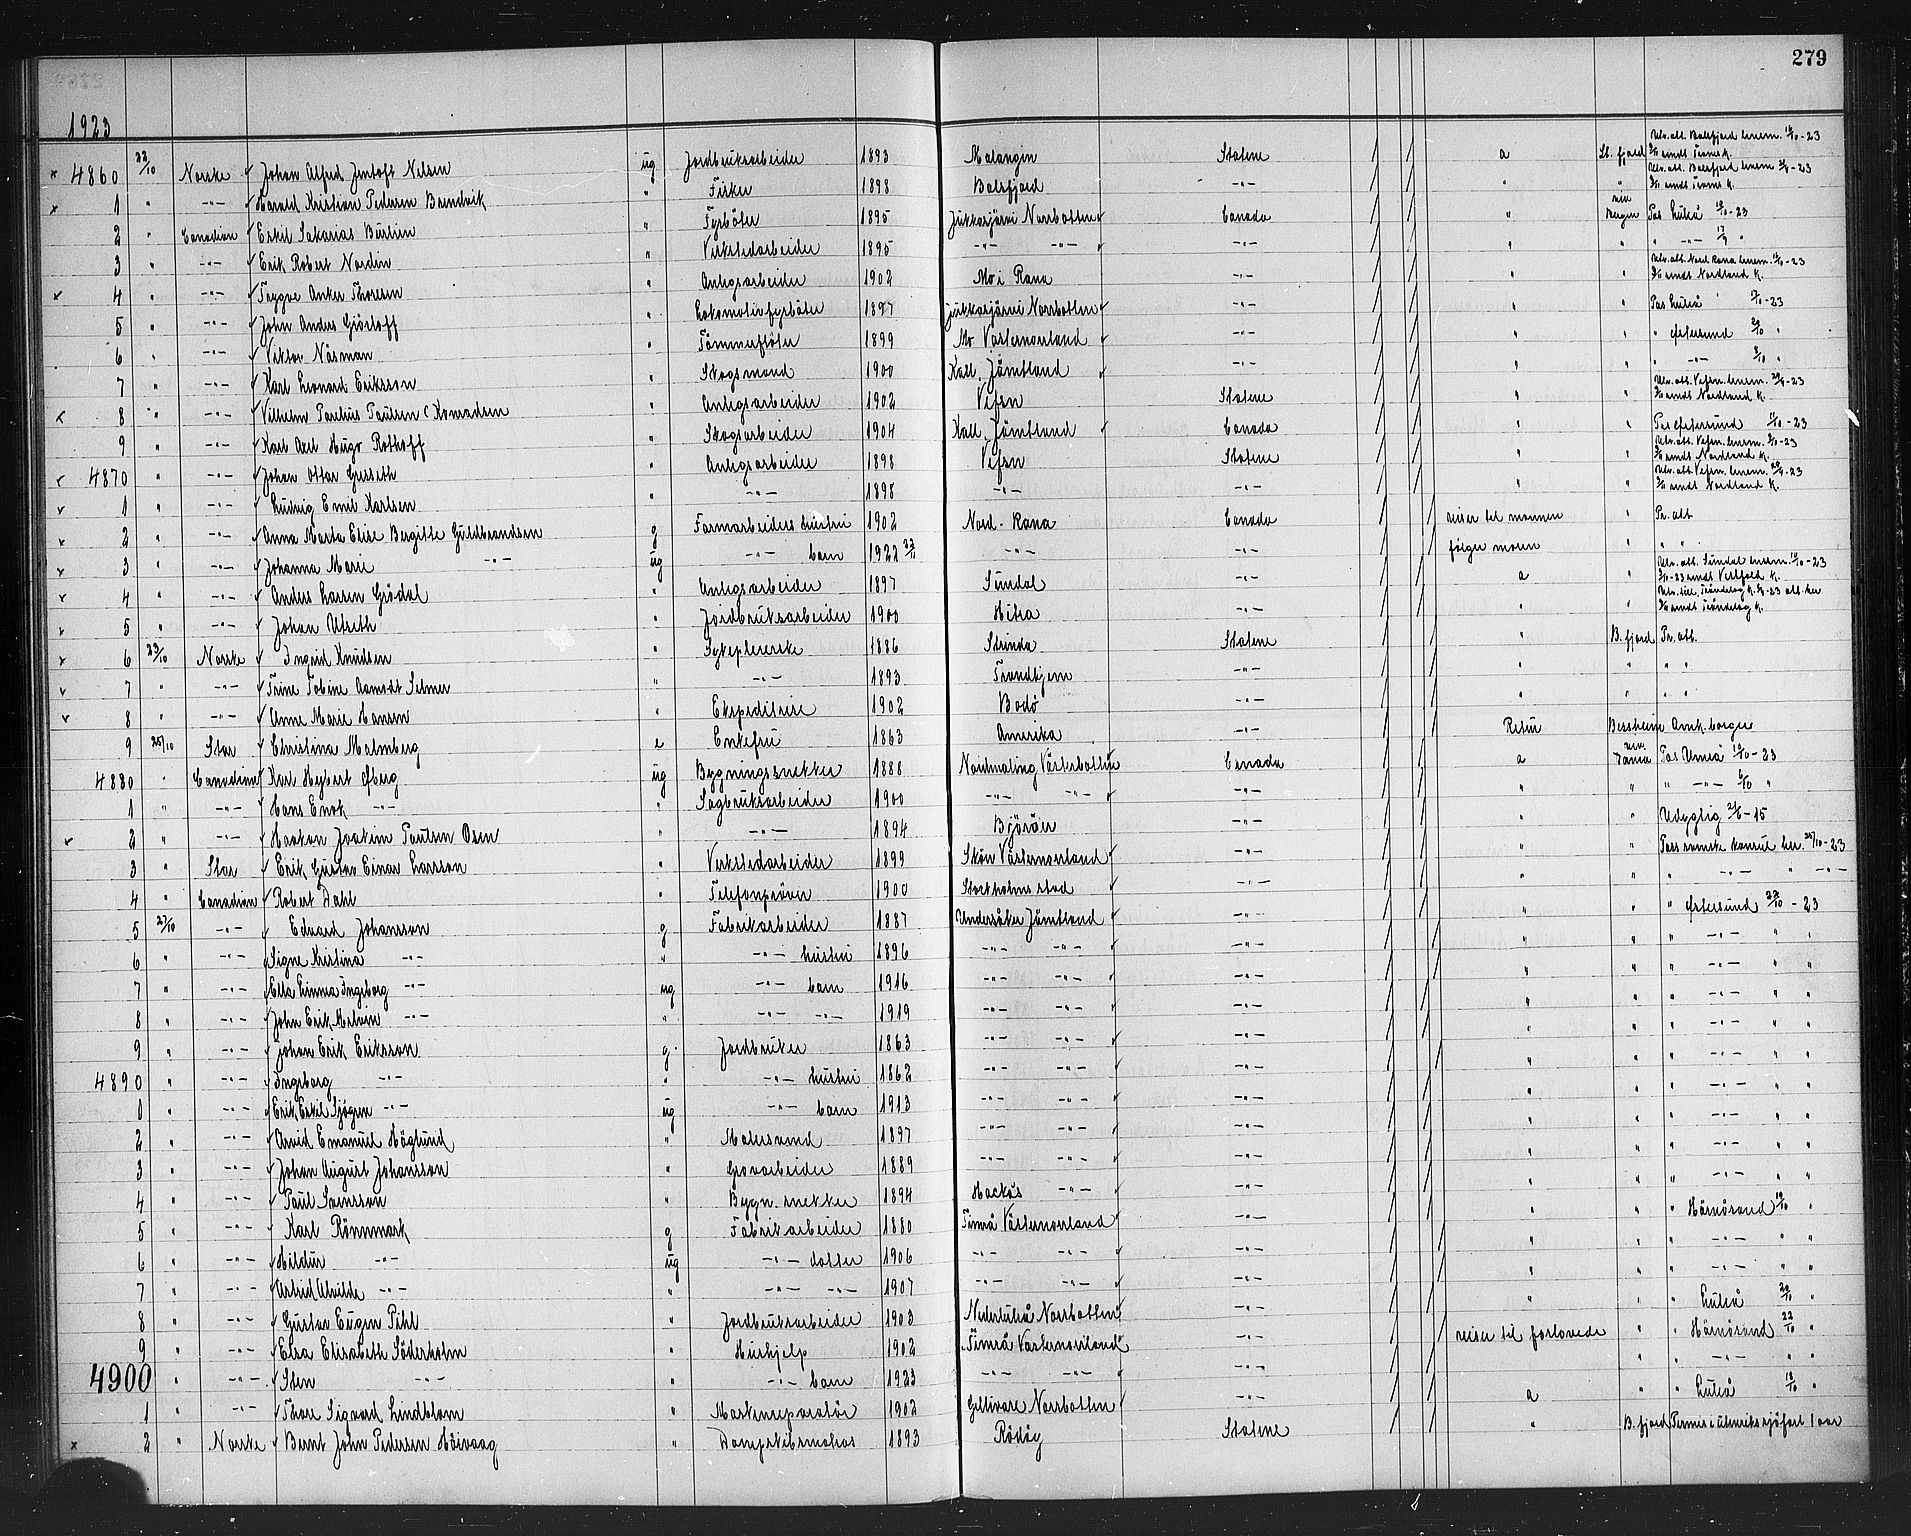 279
1923
4860 22/10 Norske Johan Alfred Jentoft Nilsen ug Jordbruksarbeider 1893 Malangen Statene a St. fjord Utv. att. Balsfjord lensm. 18/10-23
1 " -"- Harald Kristian Pedersen Brendvik " Fisker 1898 Balsfjord -"- " " Utv. att. Balsfjord lensm.
2 " Canadian Eskil Sakarias Burlin " Fyrböter 1895 Jukkasjärvi Norrbotten Canada " Bergen Pas Luleå 18/10-23
3 " -"- Erik Robert Nordin " Verkstedarbeider 1895 -"- -"- -"- " " " -"- 17/9 "
4 " -"- Trygve Anker Thoresen " Anlegsarbeider 1902 Mo i Rana -"- " " Utv. att. Nord Rana lensm.
5 " -"- John Anders Giörloff " Lokomotivfyrböter 1897 Jukkasjärvi Norrbotten -"- " " Pas Luleå
6 " -"- Viktor Näsman " Tömmerflöter 1899 Mo Västernorrland -"- " " " Östersund 20/10 "
7 " -"- Karl Leonard Eriksson " Skogsmand 1900 Kall, Jämtland -"- " " " -"- 9/10 "
8 " -"- Vilhelm Paulius Paulsen (Konradsen " Anlegsarbeider 1902 Vefsn Statene " " Utv. att. Vefsn lensm. 29/9-23
9 " -"- Karl Axel Hugo Rothoff " Skogsarbeider 1904 Kall, Jämtland Canada " " Pas Östersund 11/10-23
4870 " -"- Johan Ottar Gresseth " Anlegsarbeider 1898 Vefsn Statene " " Utv. att. Vefsn lensm.
1 " -"- Ludvig Emil Karlsen " -"- 1898 -"- -"- " " Utv. att. Vefsn lensm.
2 " -"- Anna Marta Elise Bergitte Guldbrandsen g Farmarbeiders hustru 1902 Nord-Rana Canada reiser til mannen " Pr. att
3 " -"- Johanna Marie -"- ug -"- barn 1922 22/11 -"- -"- følger moren " " "
4 " -"- Anders Larsen Grödal " Anlegsarbeider 1897 Sundal -"- a " Utv. att. Sundal lensm. 18/10-23
5 " -"- Johan Utseth " Jordbruksarbeider 1900 Hitra " "
6 23/10 Norske Ingrid Knudsen " Sykepleierske 1886 Strinda Statene " B. fjord Pr. att.
7 " -"- Trine Tobine Aamodt Selmer " -"- 1893 Trondhjem -"- " " " "
8 " -"- Anne Marie Hansen " Ekspeditrise 1902 Bodö -"- " " " "
9 25/10 Star Christina Malmberg e Enkefru 1863 Amerika -"- Retur Bessheim Amk. borger
4880 " Canadian Karl Hybert Öberg ug Bygningssnekker 1888 Nordmaling Västerbotten Canada a Tania Pas Umeå 18/10-23
1 " -"- Hans Enok -"- " Sagbruksarbeider 1900 -"- -"- -"- " " " -"- 6/10 "
2 " -"- Haakon Joakim Paulsen Osen " -"- 1894 Björör -"- " " Udygtig 21/6-15
3 " Star Erik Gustav Einar Larsson " Verkstedarbeider 1899 Skön Västernorrland -"- " " Pass svenske konsul her. 25/10-23
4 " Canadian Robert Dahl " Telefonprøver 1900 Stockholms stad -"- " " " -"- " -"-
5 27/10 -"- Edvard Johansson g Fabrikarbeider 1887 Undersåker Jämtland -"- " " " Östersund 22/10-23
6 " -"- Signe Kristina -"- " -"- hustru 1896 -"- -"- -"- " " " -"- " "
7 " -"- Elsa Linnea Ingeborg -"- ug -"- barn 1916 -"- -"- -"- " " " -"- " "
8 " -"- John Erik Melvin -"- " -"- -"- 1919 -"- -"- -"- " " " -"- " "
9 " -"- Johan Erik Eriksson g Jordbruker 1863 -"- -"- -"- " " " -"- " "
4890 " -"- Ingeborg -"- " -"- hustru 1862 -"- -"- -"- " " " -"- " "
1 " -"- Erik Eskil Sjögren -"- ug -"- barn 1913 -"- -"- -"- " " " -"- " "
2 " -"- Arvid Emanuel Höglund " Malersvend 1897 -"- -"- -"- " " " -"- " "
3 " -"- Johan August Johansson " Grovarbeider 1889 -"- -"- -"- " " " -"- " "
4 " -"- Paul Svensson " Bygn. snekker 1894 Hackås -"- -"- " " " -"- " "
5 " -"- Karl Rönnmark g Fabrikarbeider 1880 Timrå Västernorrland -"- " " " Härnösand 19/10 "
6 " -"- Hildur -"- ug -"- datter 1906 -"- -"- -"- " " " -"- " "
7 " -"- Astrid Alvilde -"- " -"- -"- 1907 -"- -"- -"- " " " -"- " "
8 " -"- Gustav Eugen Pihl " Jordbruksarbeider 1903 Nederluleå Norrbotten -"- " " " Luleå 20/10 "
9 " -"- Elsa Elisabeth Söderholm " Hushjelp 1902 Timrå Västernorrland -"- reiser til forlovede " " Härnösand 22/10 "
4900 " -"- Sten -"- " -"- barn 1923 -"- -"- -"- " " -"- " "
1 " -"- Thore Sigvard Lindblom " Maskinreparatör 1902 Gellivare Norrbotten -"- a " " Luleå 18/10 "
2 " Norske Bernt John Pedersen Höivaag " Dampskibsmatros 1893 Rödöy Statene " B. fjord Permis i utenriks sjöfart 1 aar